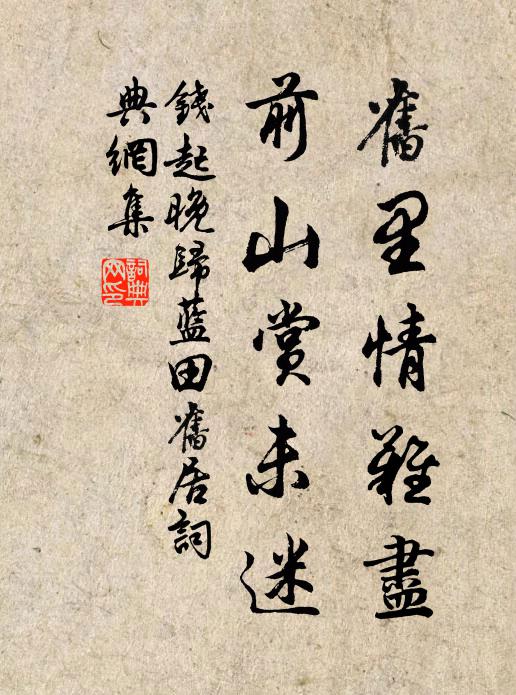 舊里情難盡
前山賞未迷
錢起晚歸藍田舊居詞
典網集
詞典
网印